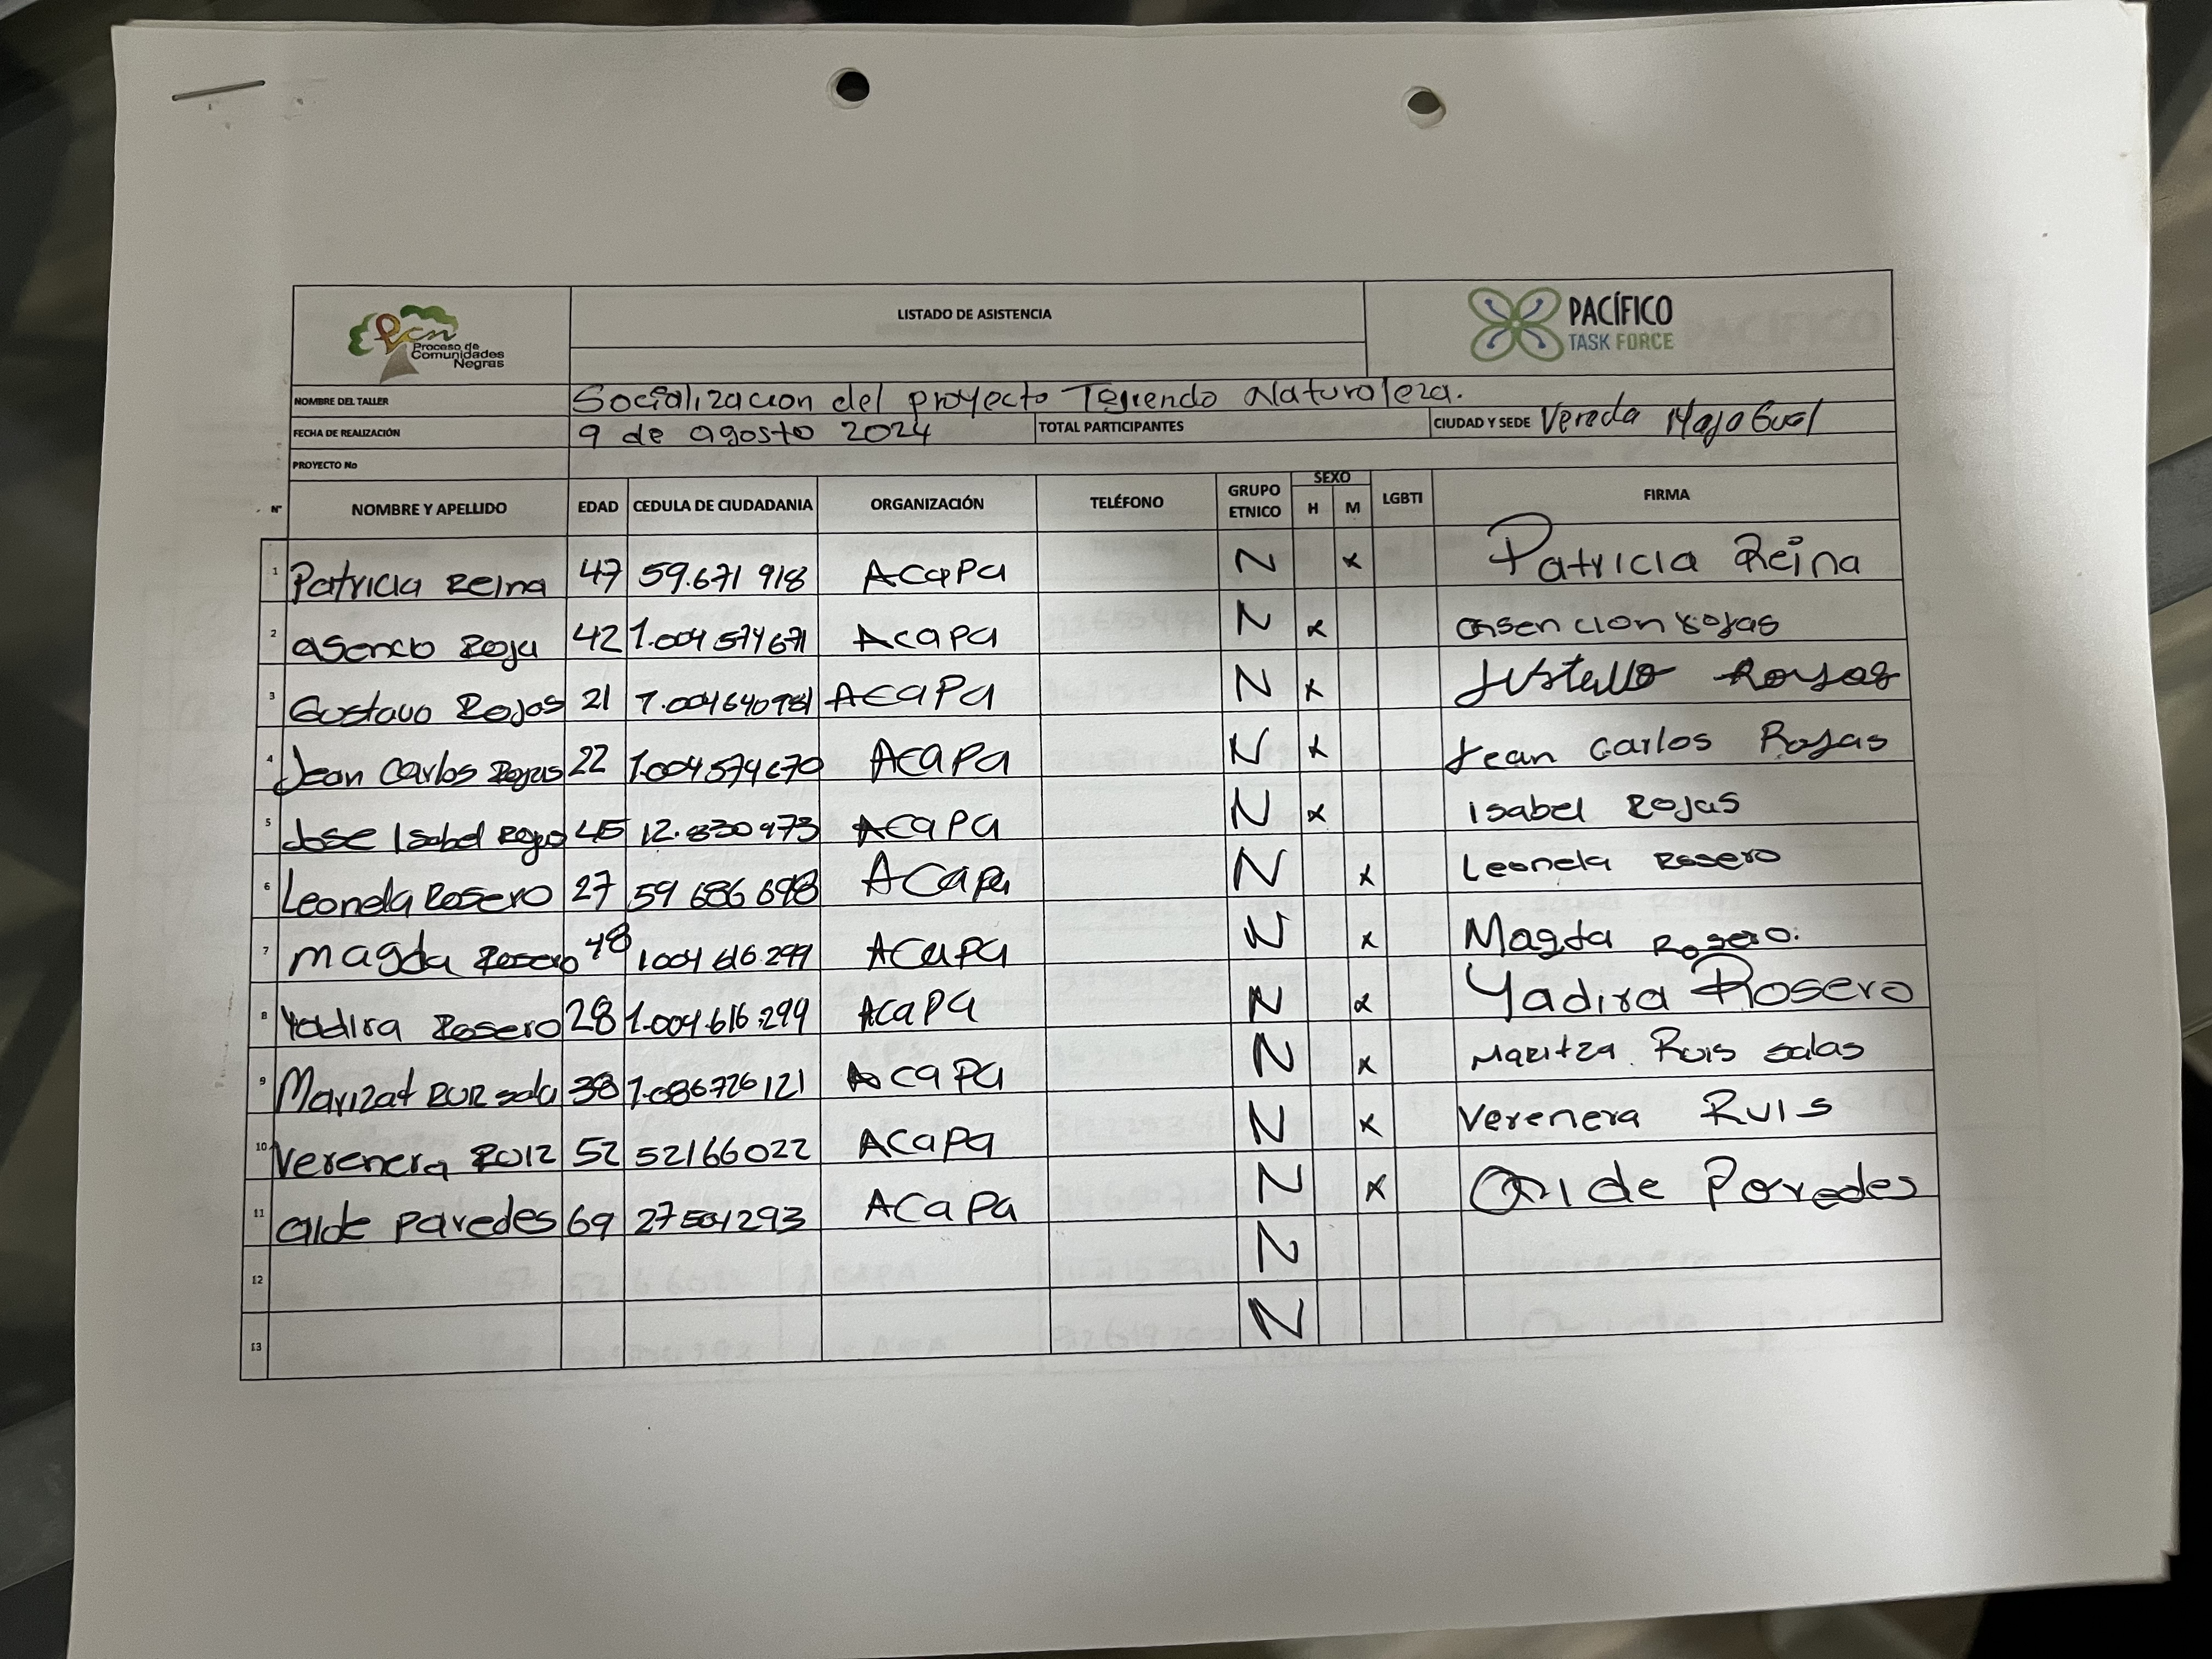 Pcn
Proceso de
Comunidades
Negras
LISTADO DE ASISTENCIA
PACÍFICO
TASK FORCE
NOMBRE DEL TALLER Socialización del proyecto Tejiendo Naturaleza.
FECHA DE REALIZACIÓN 9 de agosto 2024 TOTAL PARTICIPANTES CIUDAD Y SEDE Vereda
PROYECTO No
N° NOMBRE Y APELLIDO EDAD CEDULA DE CIUDADANIA ORGANIZACIÓN TELÉFONO GRUPO ETNICO SEXO H M LGBTI FIRMA
1 Patricia Reina 47 59.671 918 ACAPA N x Patricia Reina
2 Asencio Roja 42 1.004 574671 Acapa N x asencion rojas
3 Gustavo Rojas 21 1.004640981 ACAPA N x Rojas
4 Jean Carlos Rojas 22 1.004574670 ACAPA N x Jean Carlos Rojas
5 Jose Isabel Rojas 45 12.830973 ACAPA N x Isabel Rojas
6 Leonela Rosero 27 59 686 698 ACapa N x Leonela Rosero
7 magda Rosero 48 1004 616.299 ACAPA N x Magda Rosero.
8 Yadira Rosero 28 1.004.616.299 ACAPA N x Yadira Rosero
9 Marizat sala 38 1.086726121 ACAPA N x Maritza Ruis salas
10 Verenera Ruiz 52 52166022 ACAPA N x Verenera Ruis
11 alde paredes 69 27501293 ACAPA N x Paredes
12 N
13 N